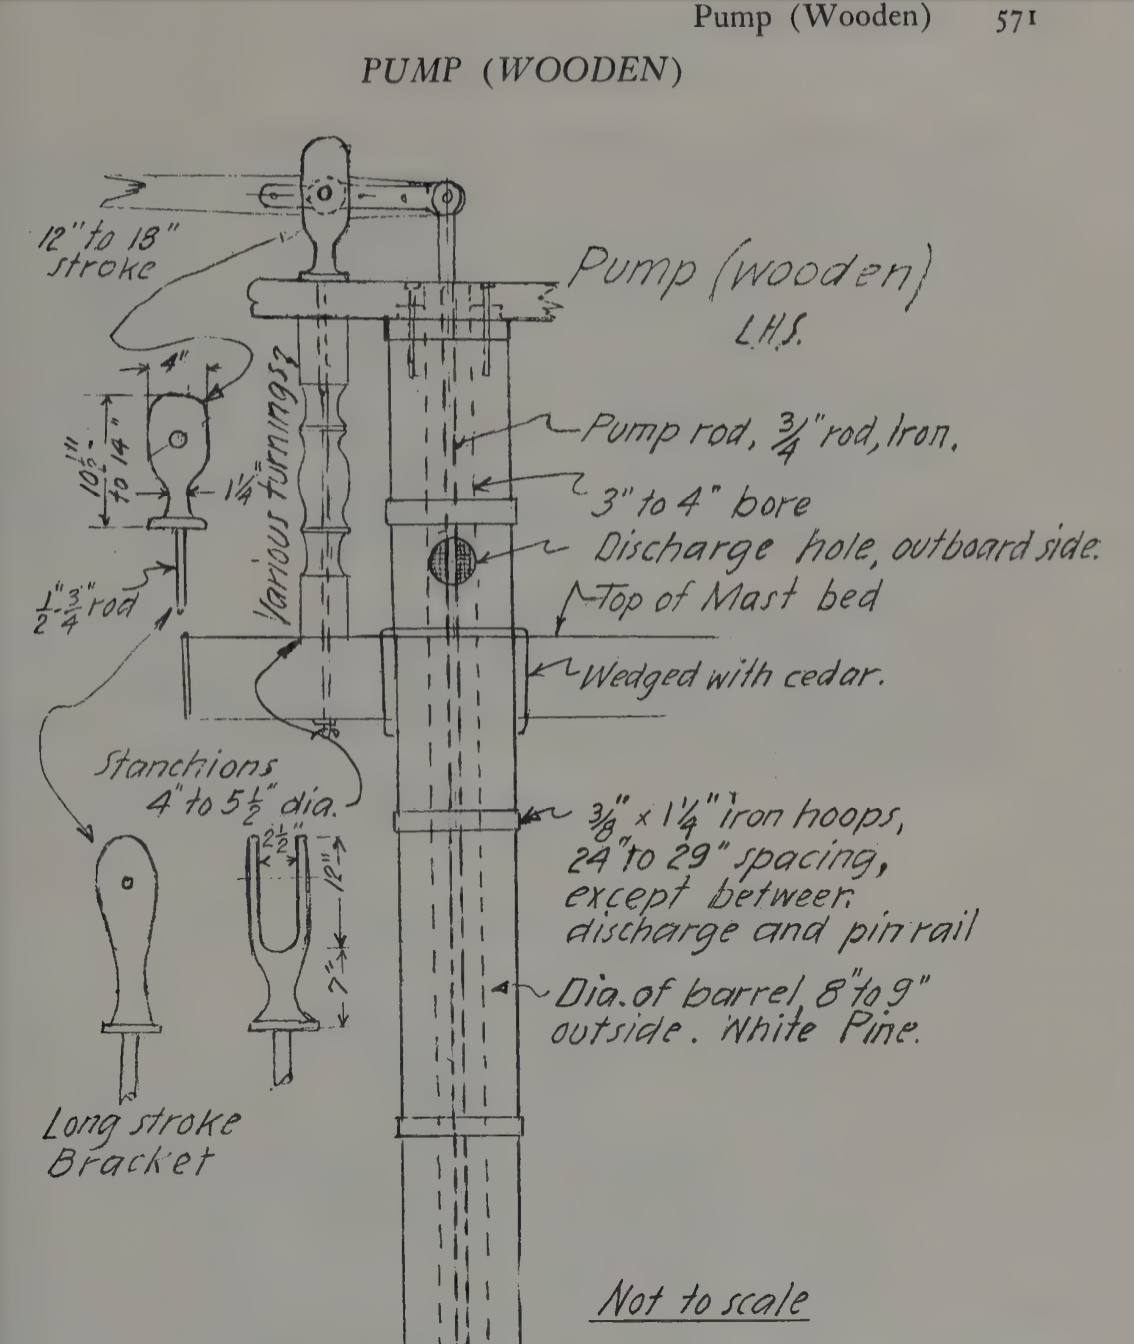 Pump (Wooden) 571
PUMP (WOODEN)
12" to 18"
stroke
Pump (wooden)
L.H.S.
4"
10½"-
to 14"
1¼"
Various turnings
Pump rod, ¾" rod, Iron.
3" to 4" bore
Discharge hole, outboard side.
½"-¾" rod
Top of Mast bed
Wedged with cedar.
Stanchions
4" to 5½" dia.
2½"
12"
7"
⅜" x 1¼" iron hoops,
24" to 29" spacing,
except between
discharge and pin rail
Dia. of barrel, 8" to 9"
outside. White Pine.
Long stroke
Bracket
Not to scale